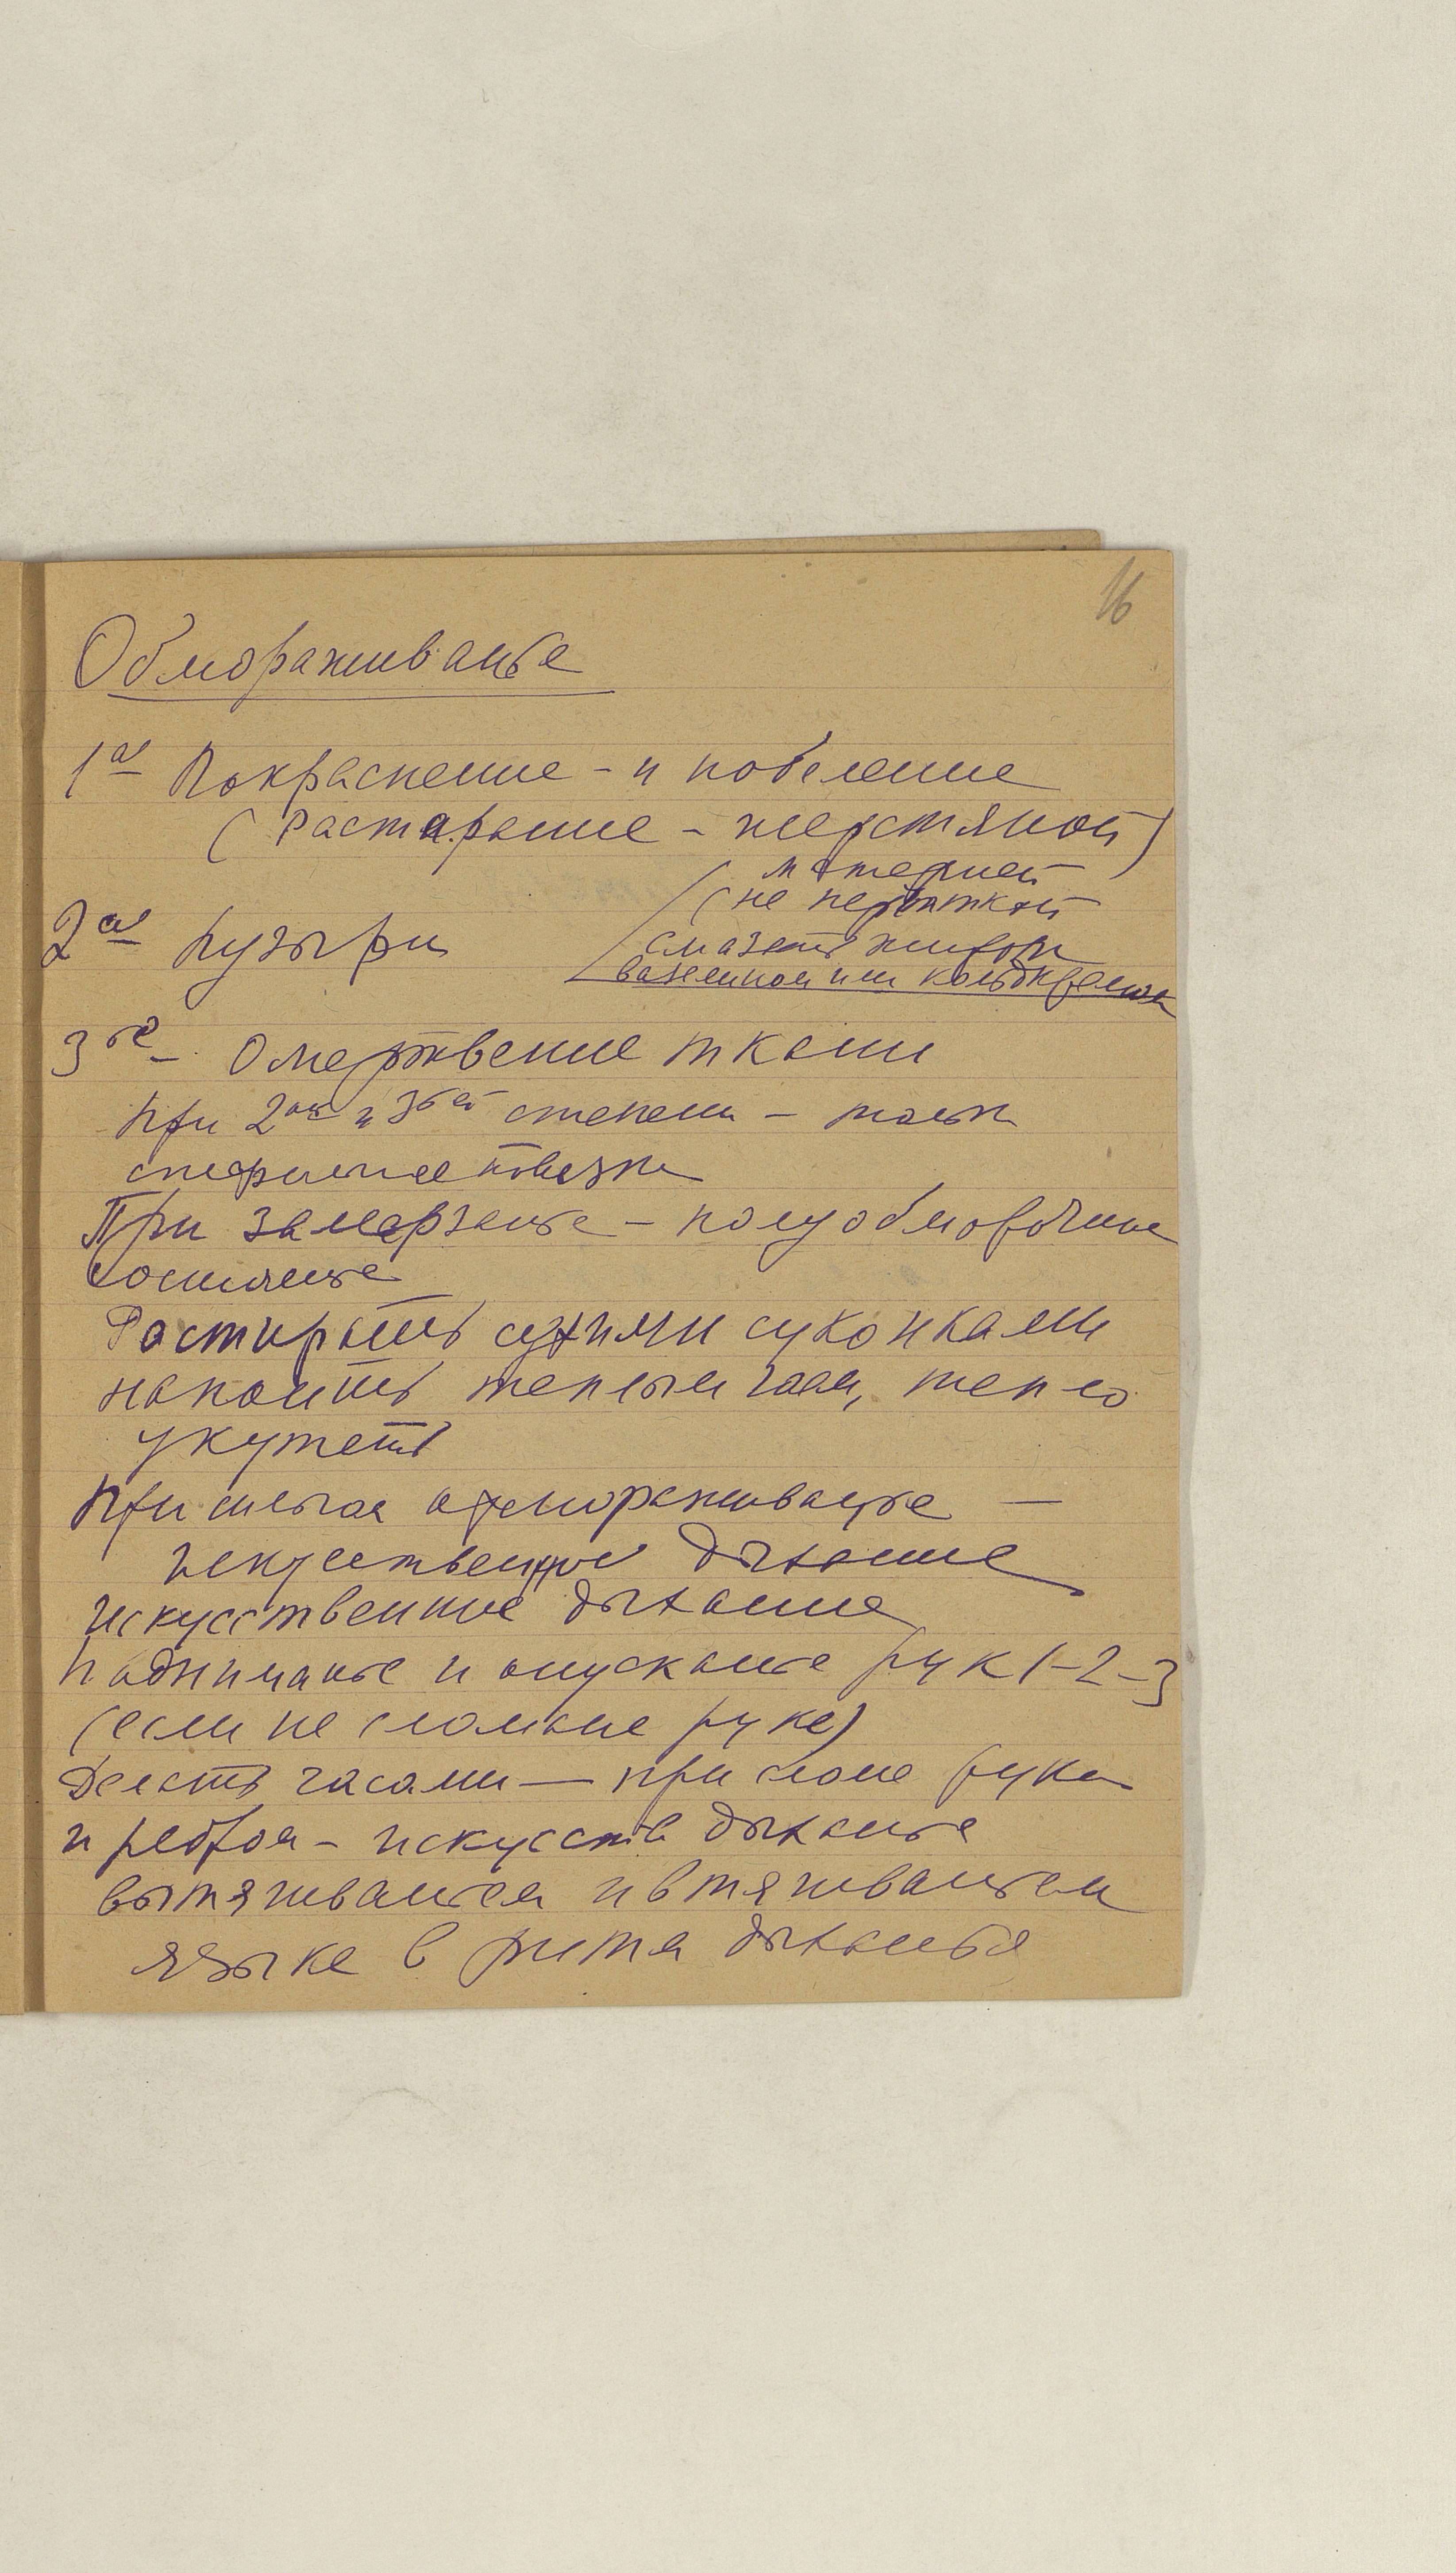 16
Обмораживанье
1ая Покраснение - и побеление
(Растирание - шерстяной)
материей
(не перчаткой
смазать жиром
вазелином или кольдкремом
2ая Пузыри
3ье - Омертвение ткани
при 2ой и 3ьей степени - только
стерильная повязка
При замерзанье - полуобморочное
состоянье
Растирать сухими суконками
напоить теплым чаем, тепло
укутать
При обмораживанье -
искусственное дыхание
искусственное дыхание
Поднимание и опускание рук 1-2-3
(если не сломаны руки)
Делать часами - при сломе руки
и ребра - искусств дыханье
вытягиваньем и втягиваньем
языка в ритм дыханья